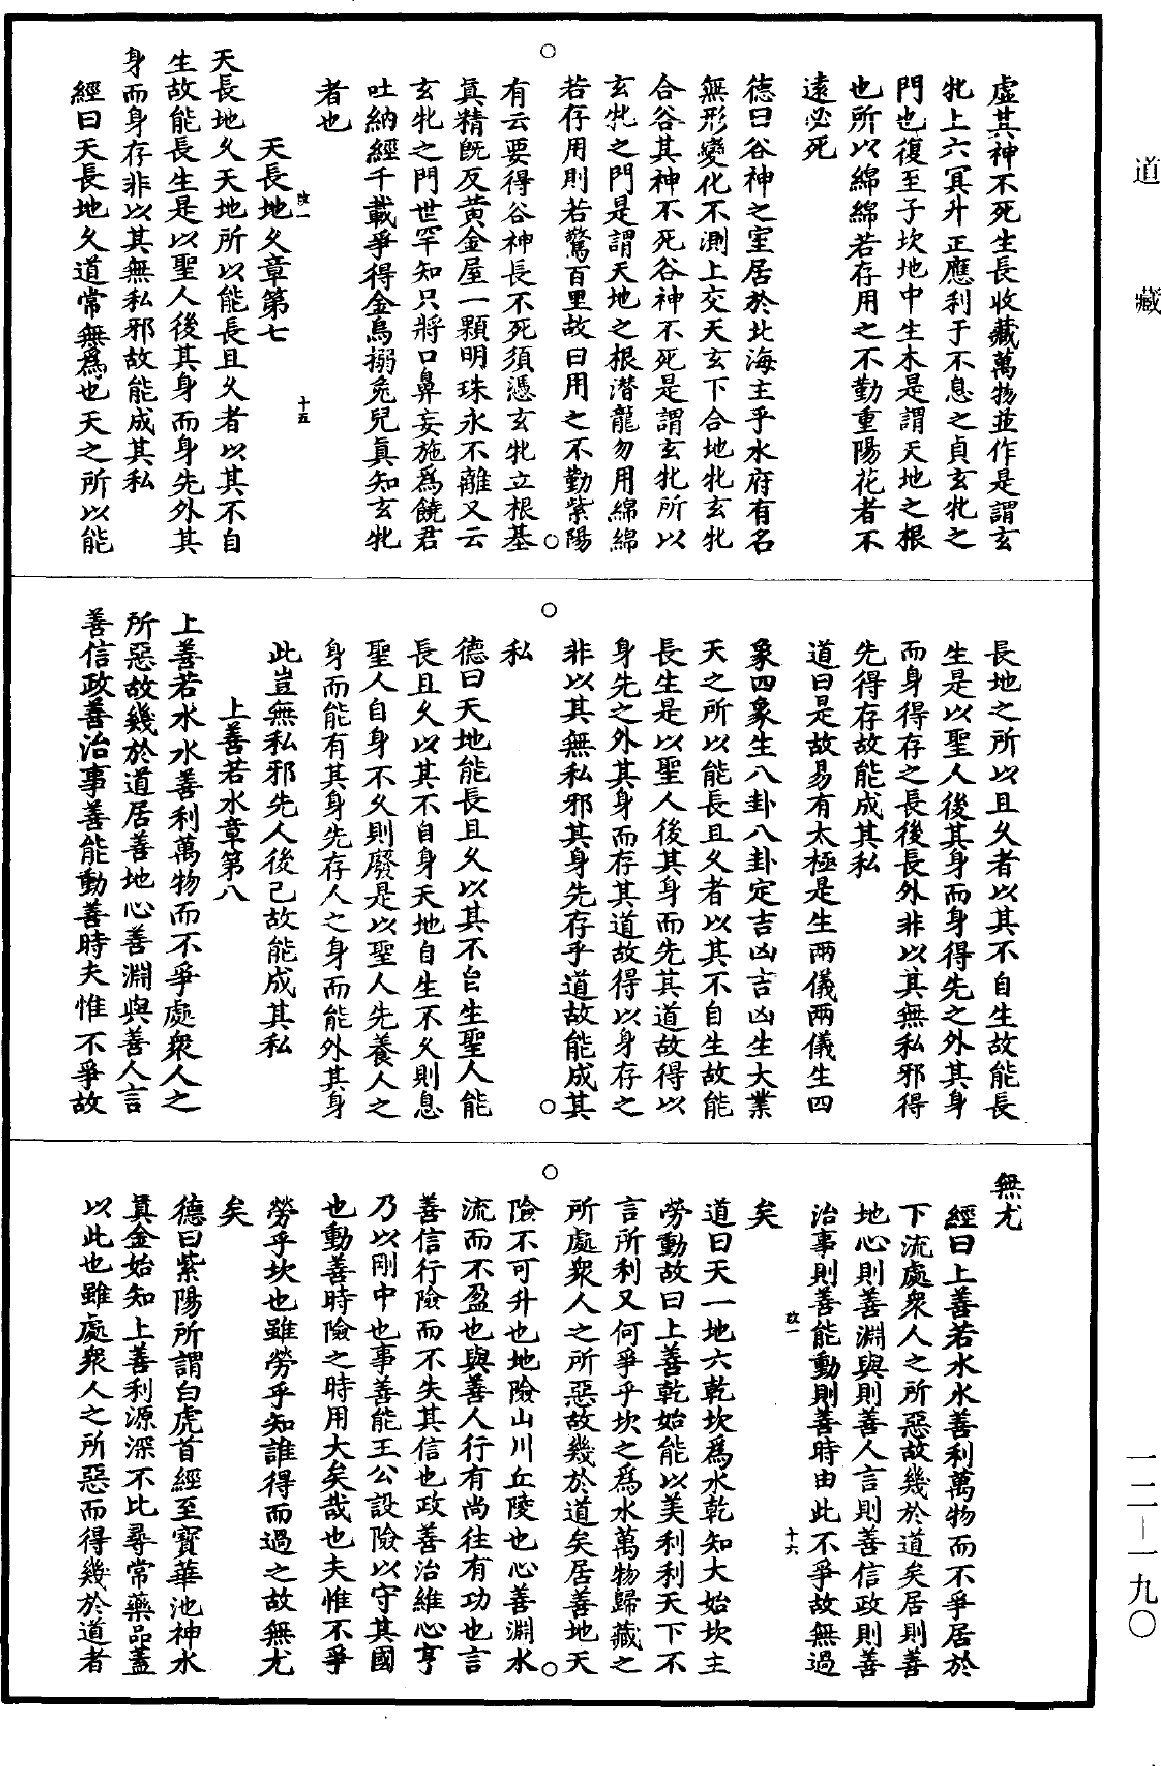 道藏
虛其神不死生長收藏萬物並作是謂玄
牝上六冥升正應利于不息之貞玄牝之
門也復至子坎地中生木是謂天地之根
也所以綿綿若存用之不勤重陽花者不
遠必死
德曰谷神之室居於北海主乎水府有名
無形變化不測上交天玄下合地牝玄牝
合谷其神不死谷神不死是謂玄牝所以
玄牝之門是謂天地之根潛龍勿用綿綿
若存用則若驚百里故曰用之不勤紫陽
有云要得谷神長不死須憑玄牝立根基
真精既反黃金屋一顆明珠永不離又云
玄牝之門世罕知只將口鼻妄施爲饒君
吐納經千載爭得金烏搦兔兒真知玄牝
者也
改一 十五
天長地久章第七
天長地久天地所以能長且久者以其不自
生故能長生是以聖人後其身而身先外其
身而身存非以其無私邪故能成其私
經曰天長地久道常無爲也天之所以能
長地之所以且久者以其不自生故能長
生是以聖人後其身而身得先之外其身
而身得存之長後長外非以其無私邪得
先得存故能成其私
道曰是故易有太極是生兩儀兩儀生四
象四象生八卦八卦定吉凶吉凶生大業
天之所以能長且久者以其不自生故能
長生是以聖人後其身而先其道故得以
身先之外其身而存其道故得以身存之
非以其無私邪其身先存乎道故能成其
私
德曰天地能長且久以其不自生聖人能
長且久以其不自身天地自生不久則息
聖人自身不久則廢是以聖人先養人之
身而能有其身先存人之身而能外其身
此豈無私邪先人後己故能成其私
上善若水章第八
上善若水水善利萬物而不爭處衆人之
所惡故幾於道居善地心善淵與善人言
善信政善治事善能動善時夫惟不爭故
無尤
經曰上善若水水善利萬物而不爭居於
下流處衆人之所惡故幾於道矣居則善
地心則善淵與則善人言則善信政則善
治事則善能動則善時由此不爭故無過
矣
改一 十六
道曰天一地六乾坎爲水乾知大始坎主
勞動故曰上善乾始能以美利利天下不
言所利又何爭乎坎之爲水萬物歸藏之
所處衆人之所惡故幾於道矣居善地天
險不可升也地險山川丘陵也心善淵水
流而不盈也與善人行有尚往有功也言
善信行險而不失其信也政善治維心亨
乃以剛中也事善能王公設險以守其國
也動善時險之時用大矣哉也夫惟不爭
勞乎坎也雖勞乎知誰得而過之故無尤
矣
德曰紫陽所謂白虎首經至寶華池神水
真金始知上善利源深不比尋常藥品蓋
以此也雖處衆人之所惡而得幾於道者
一二—一九〇